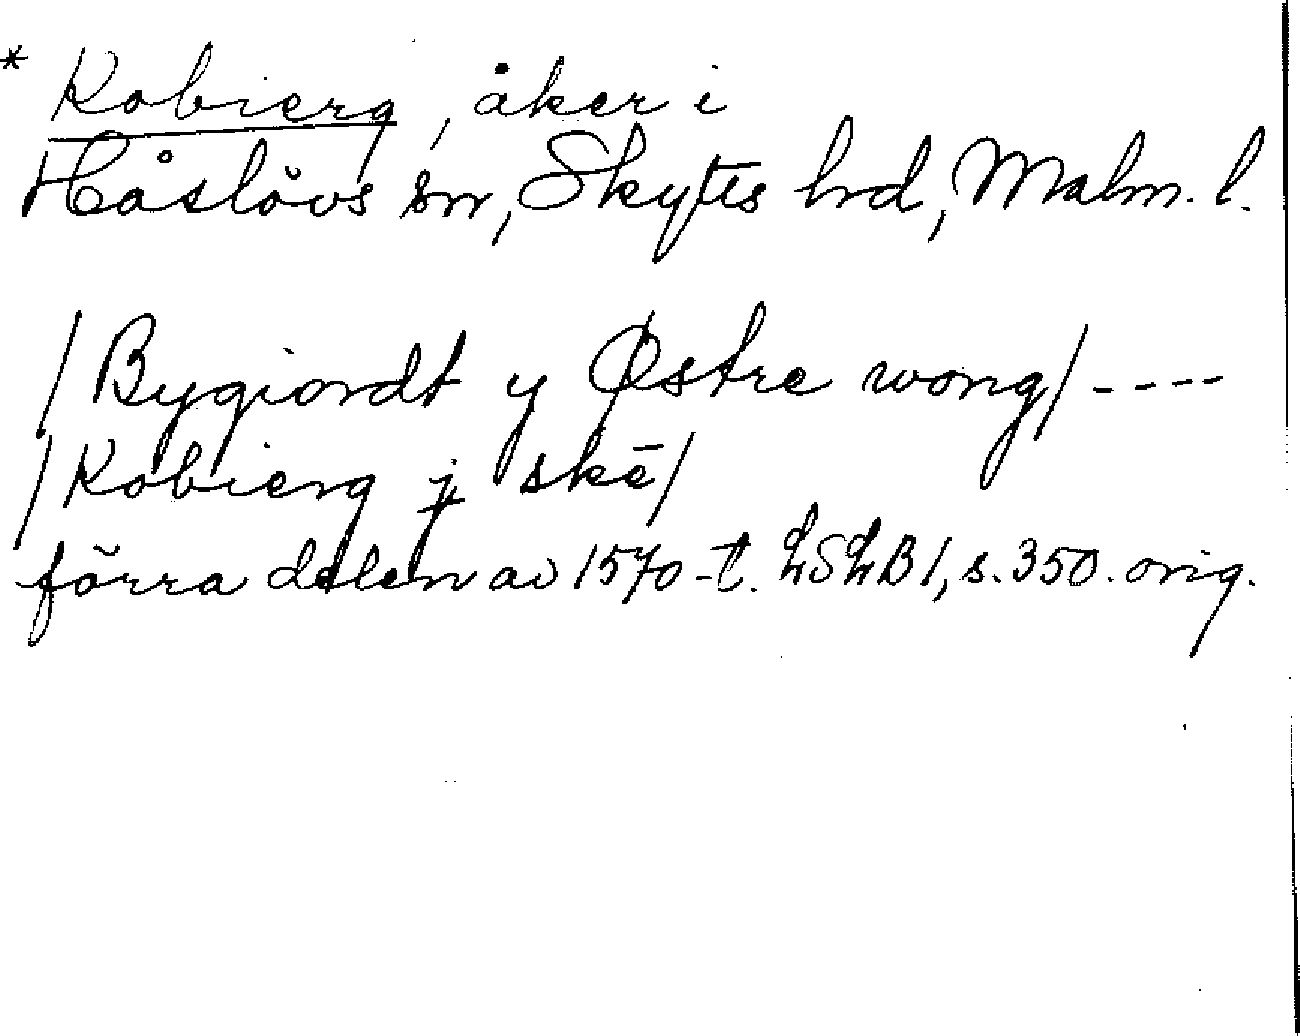 * Kobierg, åker i
Håslövs sn, Skytts hrd, Malm. l.
/Bygiordt y Østre wong/ ----
/Kobierg j skē/
förra delen av 1570-t. LSLB 1, s. 350. orig.